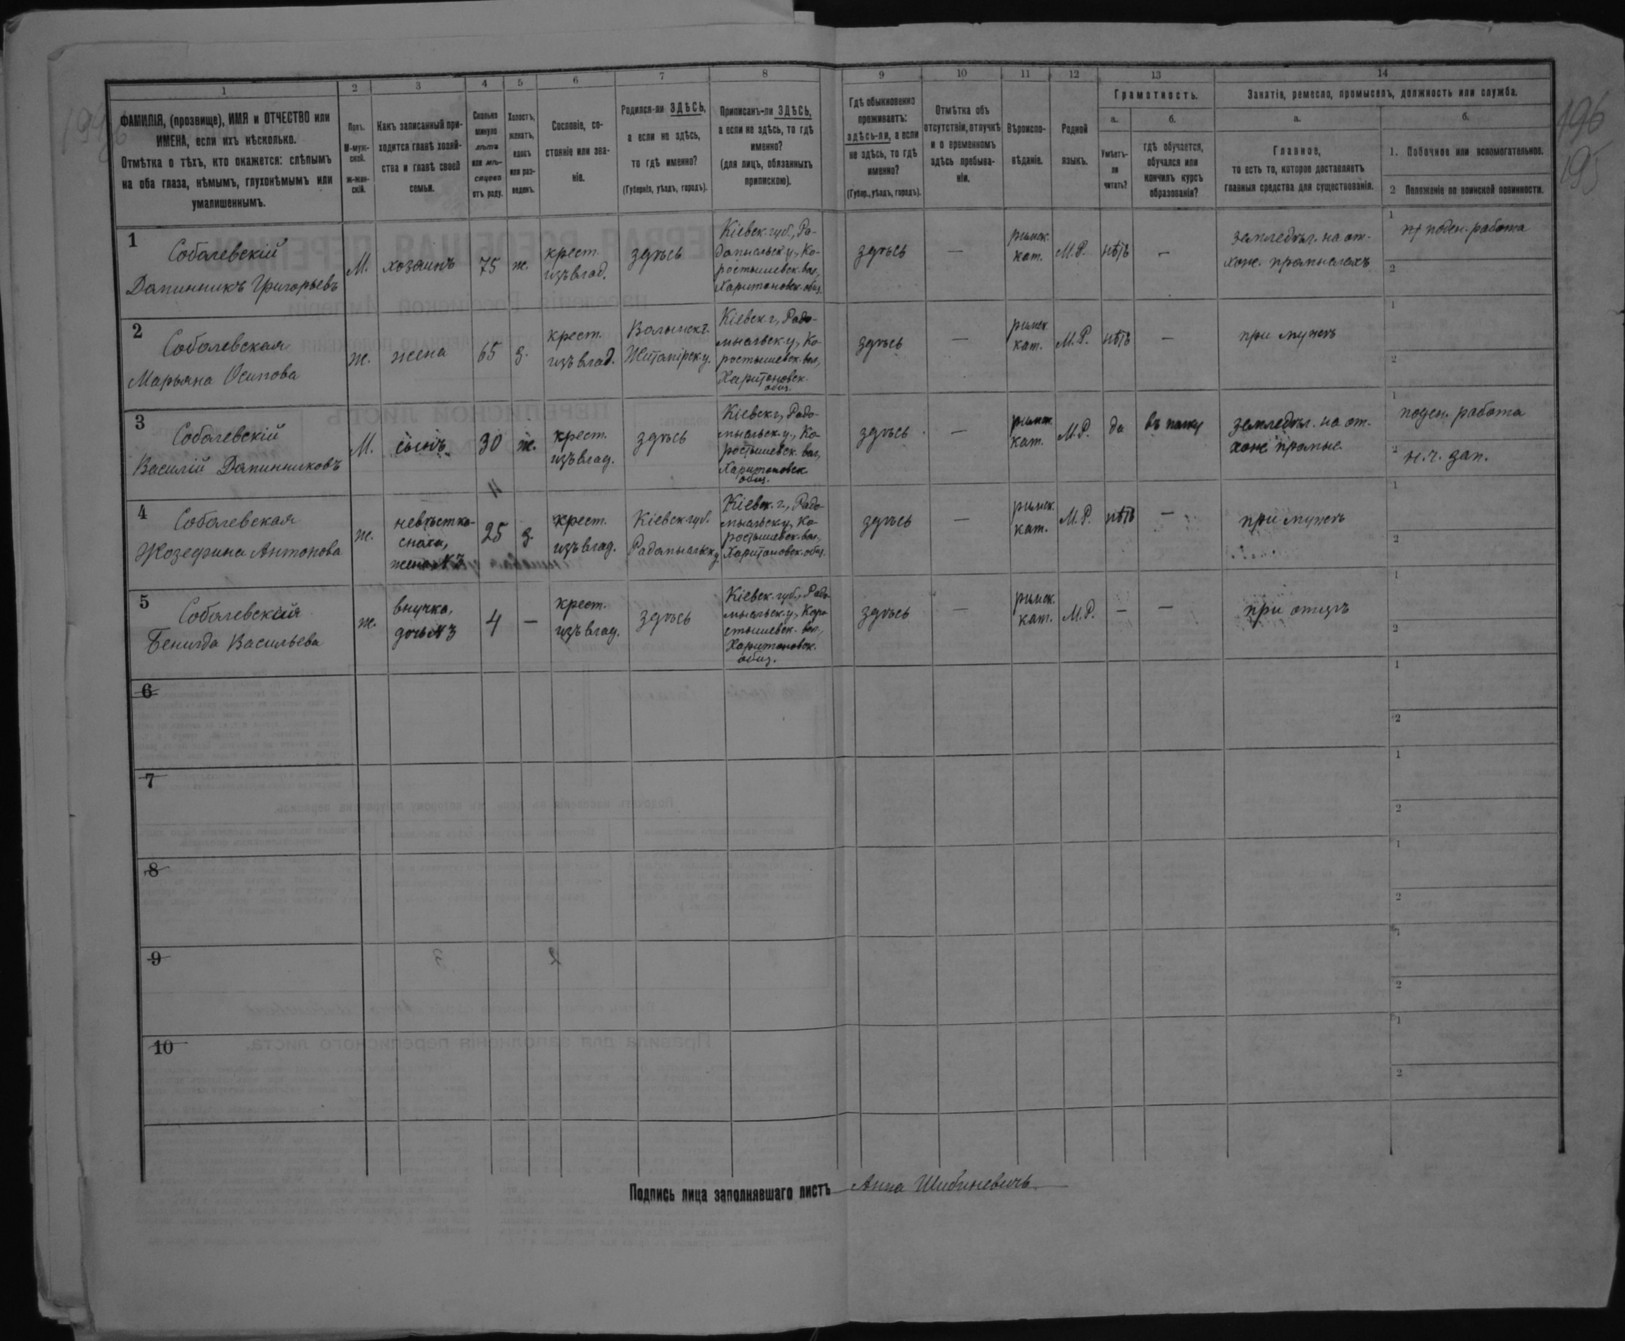 196
195
1
2
3
4
5
6
7
8
9
10
11
12
13
14
ФАМИЛІЯ, (прозвище), ИМЯ и ОТЧЕСТВО или
ИМЕНА, если ихъ нѣсколько.
Отмѣтка о тѣхъ, кто окажется: слѣпымъ
на оба глаза, нѣмымъ, глухонѣмымъ или
умалишеннымъ.
Полъ.
М-муж-
ской.
ж-жен-
скій.
Какъ записанный при-
ходится главѣ хозяй-
ства и главѣ своей
семьи.
Сколько
минуло
лѣтъ
или мѣ-
сяцевъ
отъ роду.
Холостъ,
женатъ,
вдовъ
или раз-
веденъ.
Сословіе, со-
стояніе или зва-
ніе.
Родился-ли ЗДѢСЬ,
а если не здѣсь,
то гдѣ именно?
(Губернія, уѣздъ, городъ).
Приписанъ-ли ЗДѢСЬ,
а если не здѣсь, то гдѣ
именно?
(для лицъ, обязанныхъ
припискою).
Гдѣ обыкновенно
проживаетъ:
здѣсь-ли, а если
не здѣсь, то гдѣ
именно?
(Губер., уѣздъ, городъ).
Отмѣтка объ
отсутствіи, отлучкѣ
и о временномъ
здѣсь пребыва-
ніи.
Вѣроиспо-
вѣданіе.
Родной
языкъ.
Грамотность.
а.
Умѣетъ-
ли
читать?
б.
гдѣ обучается,
обучался или
кончилъ курсъ
образованія?
Занятія, ремесло, промыселъ, должность или служба.
а.
Главное,
то есть то, которое доставляетъ
главныя средства для существованія.
б.
1. Побочное или вспомогательное.
2 Положеніе по воинской повинности.
1
Соболевскій
Доминникъ Григорьевъ
М.
хозяинъ
75
ж.
крест.
изъ влад.
здѣсь
Кіевск. губ., Ра-
домысльск. у., Ко-
ростышевск. вол.,
Харитоновск. общ.
здѣсь
—
римск.
кат.
М.Р.
нѣтъ
—
земледѣл. на от-
хож. промыслахъ
1
поден. работа
2
2
Соболевская
Марьяна Осипова
ж.
жена
65
з.
крест.
изъ влад.
Волынск. г.
Житомірск. у.
Кіевск. г., Радо-
мысльск. у., Ко-
ростышевск. вол.,
Харитоновск.
общ.
здѣсь
—
римск.
кат.
М.Р.
нѣтъ
—
при мужѣ
1
2
3
Соболевскій
Василій Доминниковъ
М.
сынъ
30
ж.
крест.
изъ влад.
здѣсь
Кіевск. г., Радо-
мысльск. у., Ко-
ростышевск. вол.,
Харитоновск.
общ.
здѣсь
—
римск.
кат.
М.Р.
да
въ полку
земледѣл. на от-
хож. промыс.
1
поден. работа
2
н. ч. зап.
4
Соболевская
Жозефина Антонова
ж.
невѣстка-
сноха,
жена №3
25
з.
крест.
изъ влад.
Кіевск. губ.
Радомысльск. у.
Кіевск. г., Радо-
мысльск. у., Ко-
ростышевск. вол.,
Харитоновск. общ.
здѣсь
—
римск.
кат.
М.Р.
нѣтъ
—
при мужѣ
1
2
5
Соболевская
Бенигда Васильева
ж.
внучка,
дочь №3
4
—
крест.
изъ влад.
здѣсь
Кіевск. губ., Радо-
мысльск. у., Коро-
стышевск. вол.,
Харитоновск.
общ.
здѣсь
—
римск.
кат.
М.Р.
—
—
при отцѣ
1
2
6
1
2
7
1
2
8
1
2
9
1
2
10
1
2
Подпись лица заполнявшаго листъ